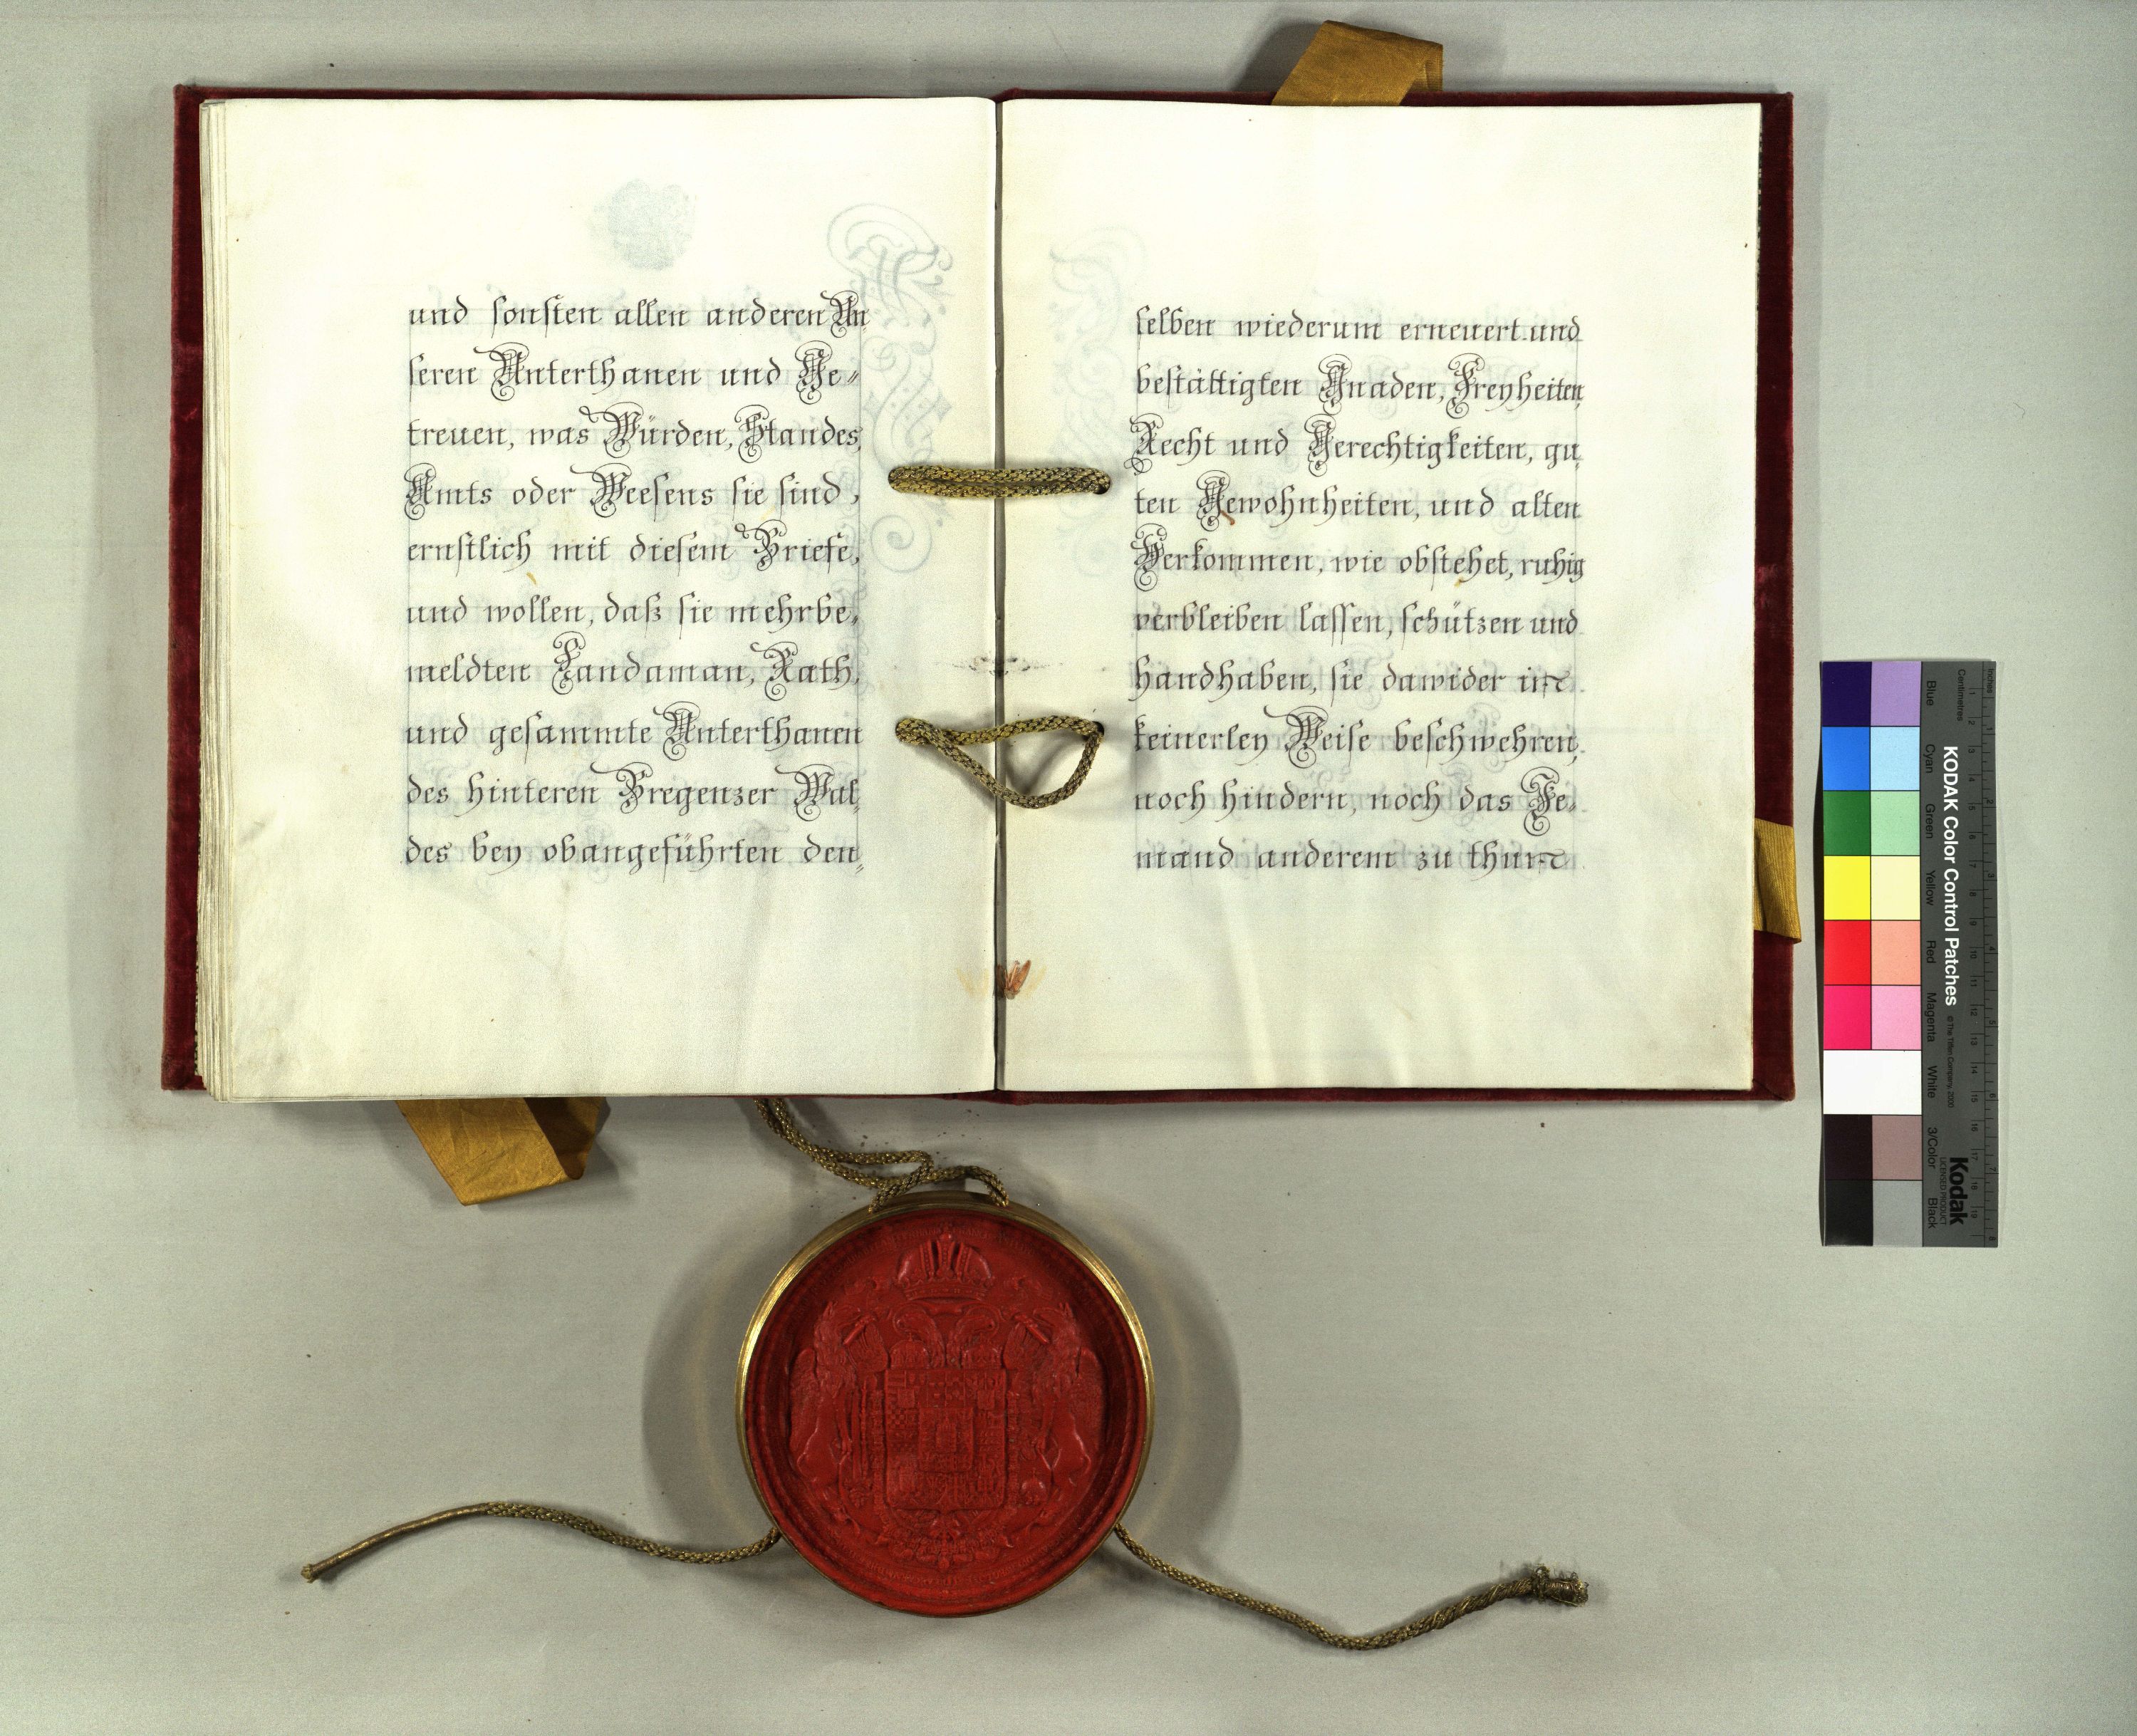 und sonsten allen anderen Un
seren Unterthanen und Ge-
treuen, was Würden, Standes,
Amts oder Weesens sie sind,
ernstlich mit diesem Briefe,
und wollen, daß sie mehrbe-
meldten Landaman, Rath,
und gesammte Unterthanen
des hinteren Bregenzer Wal-
des bey obangeführten den-
selben wiederum erneuert und
bestättigten Gnaden, Freyheiten,
Recht und Gerechtigkeiten, gu-
ten Gewohnheiten, und alten
Herkommen, wie obstehet, ruhig
verbleiben lassen, schützen und
handhaben, sie dawider in
keinerley Weise beschwehren,
noch hindern, noch das Je-
mand anderem zu thun
KODAK Color Control Patches
© The Tiffen Company, 2000
Kodak
LICENSED PRODUCT
Blue Cyan Green Yellow Red Magenta White 3/Color Black
Inches 1 2 3 4 5 6 7 8
Centimetres 1 2 3 4 5 6 7 8 9 10 11 12 13 14 15 16 17 18 19